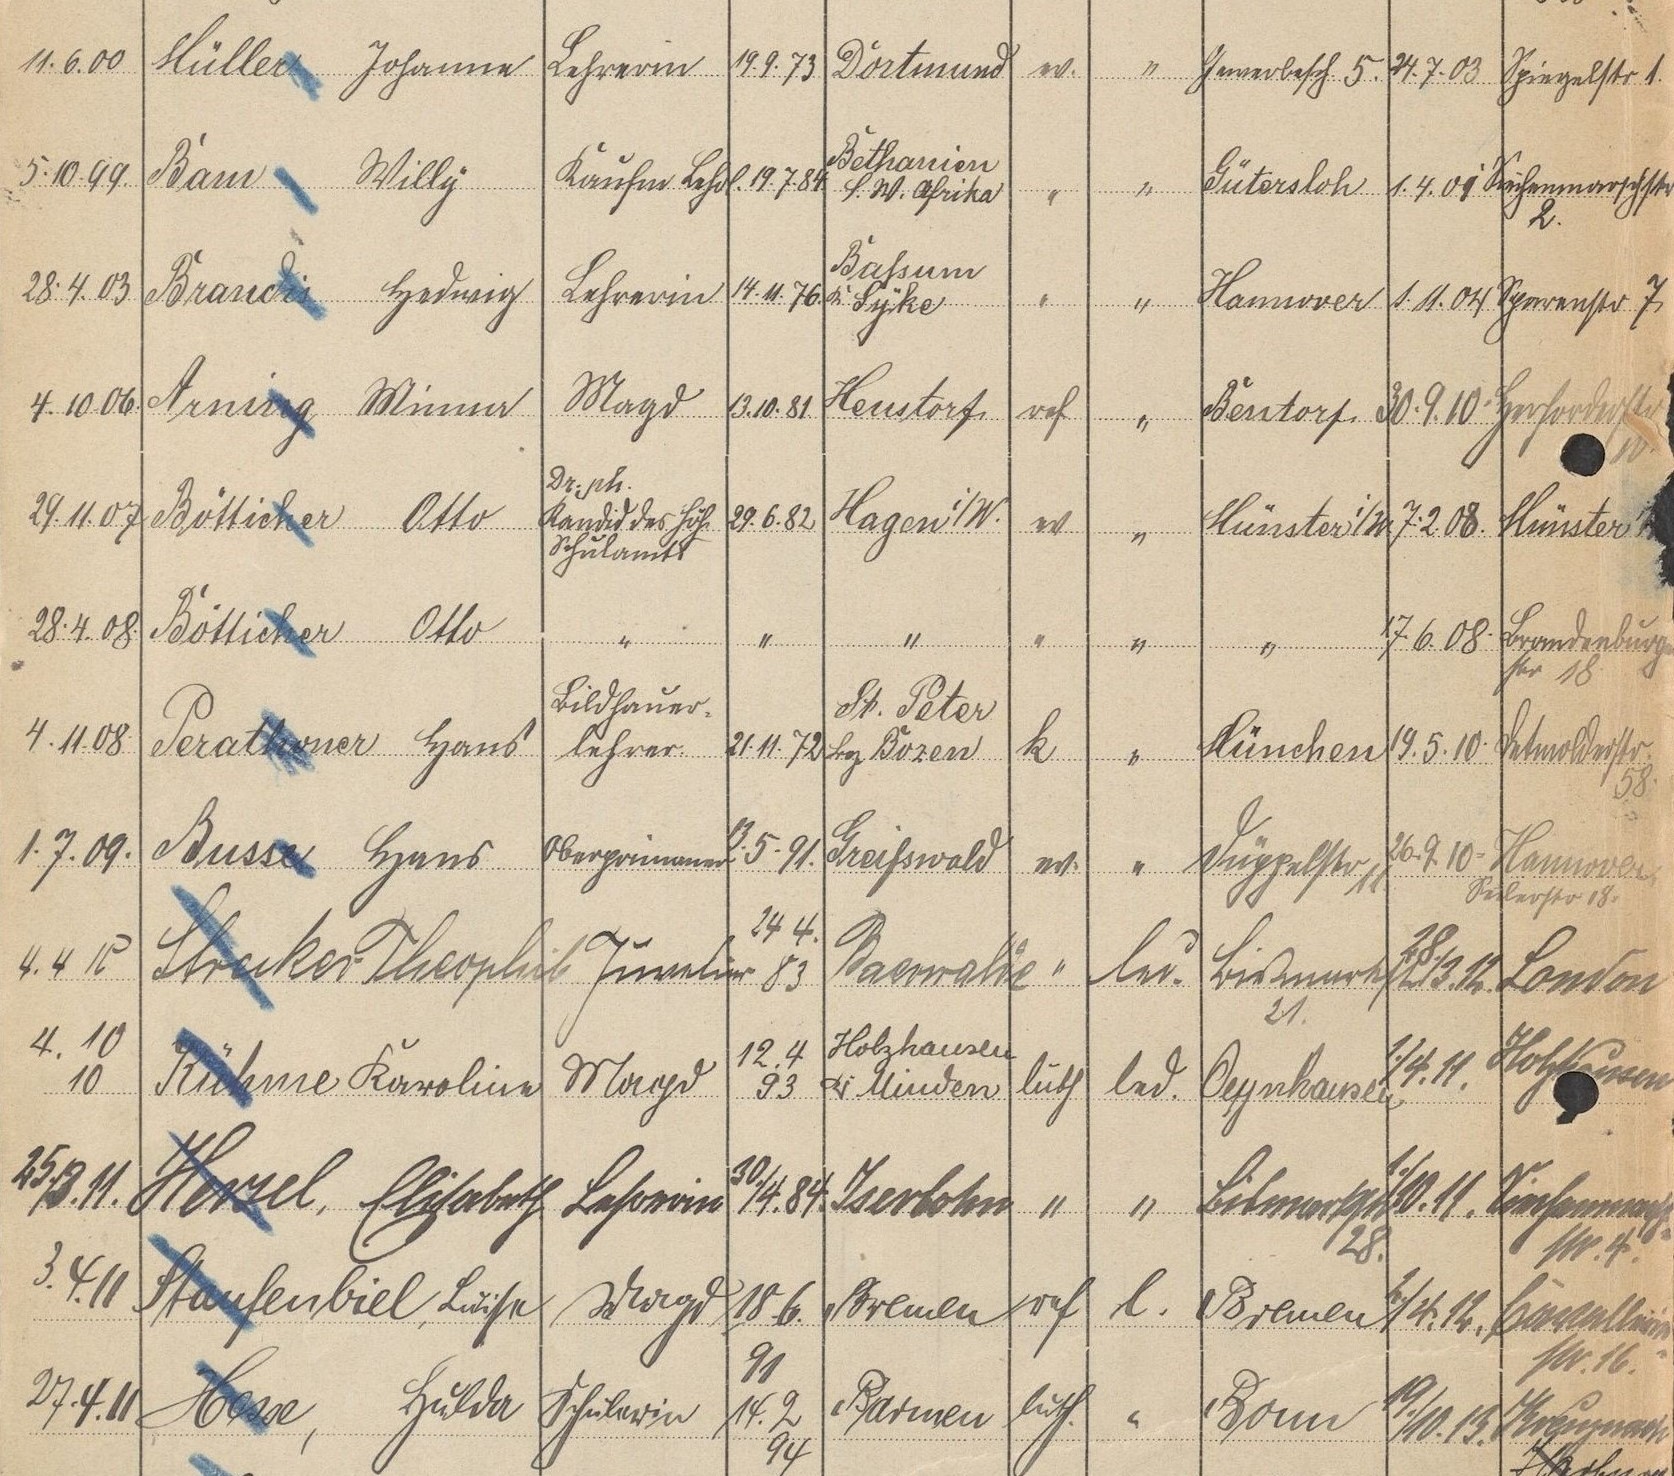 11.6.00 Müller Johanne Lehrerin 19.9.73 Dortmund ev. " Gewerbesch. 5. 24.7.03 Spiegelstr 1.
Bethanien
5.10.99 Bam Willy Kaufm Lehrl. 19.7.84 S. W. Afrika " " Gütersloh 1.4.01
2.
Baſsum
28.4.03 Brandis Hedwig Lehrerin 14.11.76 Kr Syke " " Hannover 1.11.04 Sparenstr 7
4.10.06. Arning Minna Magd 13.10.81 ref " Bentorf. 30.9.10. Herforderstr
10.
Dr. ph.
29.11.07 Bötticher Otto Kandid des höh. 29.6.82 Hagen i/W. ev " Münster i/W. 7.2.08. Münster
Schulamts
28.4.08. Bötticher Otto " " " " " " 17.6.08. Brandenburger
str 18
Bildhauer- St. Peter
4.11.08 Perathoner Hans lehrer. 21.11.72 bg Bozen k " München 19.5.10. Detmolderstr.
58.
1.7.09. Busse Hans Oberprimaner 13.5.91. Greifswald ev. " Düppelstr 11 26.9.10 Hannover
18.
24 4. 28.
4.4 10 Strecker Theophil Juwelier 83 Baerwalde " led. Bismarckstr 3.12. London
21.
4. 10 12.4 Holzhausen
10 Kühme Karoline Magd 93 Kr Minden luth led. Oeynhausen 1./4.11. Holzhausen
25./3.11. Hensel, Elisabeth Lehrerin 30./4.84. Iserlohn " " Bismarckstr 1./10.11. Siechenmarsch-
28. str. 4.
3.4.11 Staufenbiel, Luise Magd 18 6. Bremen ref l. Bremen /4.12.
91 str. 16.
27.4.11 Hesse, Hulda Schülerin 14.2 Barmen luth. " Bonn 19./10.13.
94